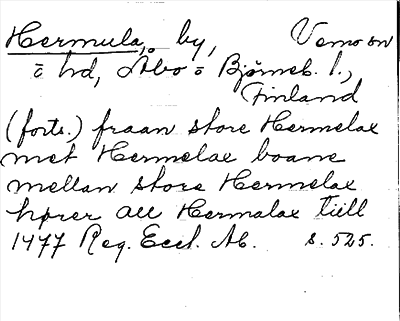 Hermula, by, Vemo sn
o hd, Åbo o Björneb. l.,
Finland
(forts.) fraan store Hermelax
met Hermelax boane
mellan store Hermelax
hører all Hermalax tiill
1477 Reg. Eccl. Ab. s. 525.